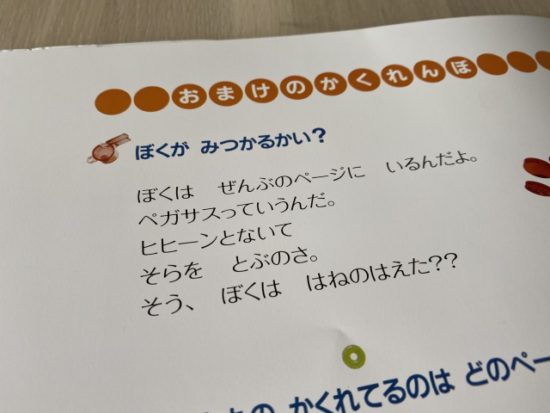 おまけのかくれんぼ
ぼくが みつかるかい？
ぼくは ぜんぶのページに いるんだよ。
ペガサスっていうんだ。
ヒヒーンとないて
そらを とぶのさ。
そう、 ぼくは はねのはえた??
かくれてるのは どのペー